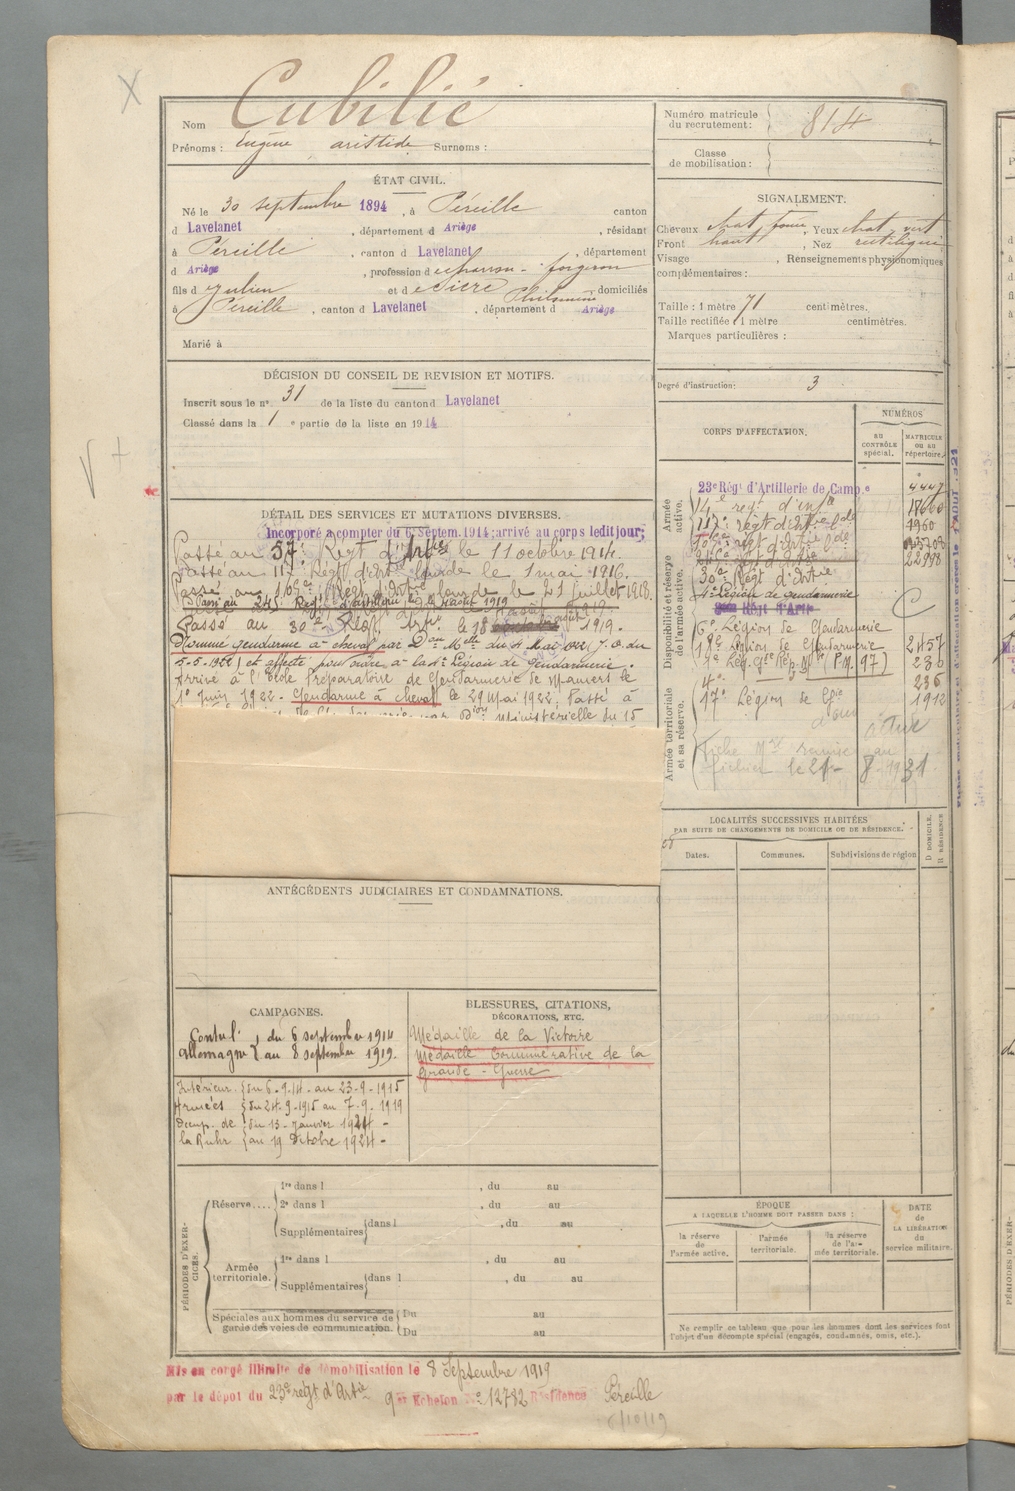 Nom Cubilié
Prénoms : Eugène aristide Surnoms :
Numéro matricule du recrutement : 814
Classe de mobilisation :
ÉTAT CIVIL.
Né le 30 septembre 1894, à Péreille canton
d Lavelanet, département d Ariège, résidant
à Péreille, canton d Lavelanet, département
d Ariège, profession de charron - forgeron
fils d Julien et de Sicre Philomène domiciliés
à Péreille, canton d Lavelanet, département d Ariège
Marié à
SIGNALEMENT.
Cheveux chat. foncé, Yeux chat. vert
Front haut, Nez rectiligne
Visage , Renseignements physionomiques
complémentaires :
Taille : 1 mètre 71 centimètres.
Taille rectifiée : 1 mètre centimètres.
Marques particulières :
Degré d'instruction : 3
DÉCISION DU CONSEIL DE REVISION ET MOTIFS.
Inscrit sous le n° 31 de la liste du canton d Lavelanet
Classé dans la 1e partie de la liste en 1914
DÉTAIL DES SERVICES ET MUTATIONS DIVERSES.
Incorporé a compter du 6 Septem. 1914; arrivé au corps ledit jour;
Passé au 57e Régt d'Artie le 11 octobre 1914.
Passé au 117e Régt d'Artie lourde le 1 mai 1916.
Passé au Régt d'Artie lourde le 21 juillet 1918.
Passé au 245e Régt d'artillerie le août 1919
Passé au 30e Régt Artie le 18 1919.
Nommé gendarme à cheval par Don Melle du 4 Mai 1922 (J.O. du
5-5-1922) et affecté pour ordre à la 4e Légion de Gendarmerie.
Arrivé à l'Ecole Préparatoire de Gendarmerie de Mamers le
1er Juin 1922 - Gendarme à cheval le 29 Mai 1922. Passé à
par Dion Ministerielle du 15
CORPS D'AFFECTATION.
NUMÉROS
AU CONTRÔLE spécial.
MATRICULE ou au répertoire.
Armée active.
23e Régt d'Artillerie de Camp.e 4447
14e regt d'infie
117e regt d'Artie lde 4960
Disponibilité et réserve de l'armée active.
245e regt d'Artie
30e Régt d'Artie
4e Légion de gendarmerie
Régt d'Artie
6e Légion de Gendarmerie
18e Légion de Gendarmerie 2457
(P.M. 97) 230
4e 236
Armée territoriale et sa réserve.
17e Légion de Gie 1912
Fiche Mle remise au
fichier le 21- 8-1931
LOCALITÉS SUCCESSIVES HABITÉES
PAR SUITE DE CHANGEMENTS DE DOMICILE OU DE RÉSIDENCE.
Dates. Communes. Subdivisions de région
D DOMICILE. R RÉSIDENCE
ANTÉCÉDENTS JUDICIAIRES ET CONDAMNATIONS.
CAMPAGNES.
Contre l' , du 6 septembre 1914
Allemagne { au 8 septembre 1919.
Intérieur { du 6-9-14 au 23-9-1915
Armées { du 24-9-1915 au 7-9-1919
Occup. de { du 13 - Janvier 1924 -
la Ruhr { au 19 Octobre 1924 -
BLESSURES, CITATIONS,
DÉCORATIONS, ETC.
Médaille de la Victoire
Médaille Commémorative de la
Grande - Guerre
PÉRIODES D'EXERCICES.
Réserve....
1re dans l , du au
2e dans l , du au
Supplémentaires { dans l , du au
Armée territoriale.
1re dans l , du au
Supplémentaires { dans l , du au
Spéciales aux hommes du service de garde des voies de communication.
Du au
Du au
ÉPOQUE
A LAQUELLE L'HOMME DOIT PASSER DANS :
la réserve de l'armée active.
l'armée territoriale.
la réserve de l'armée territoriale.
DATE de LA LIBÉRATION du service militaire.
Ne remplir ce tableau que pour les hommes dont les services font
l'objet d'un décompte spécial (engagés, condamnés, omis, etc.).
Mis en congé illimité de démobilisation le 8 Septembre 1919
par le dépot du 23e regt d'Artie 9e Echelon N° 12782 Résidence Péreille
6/10/19